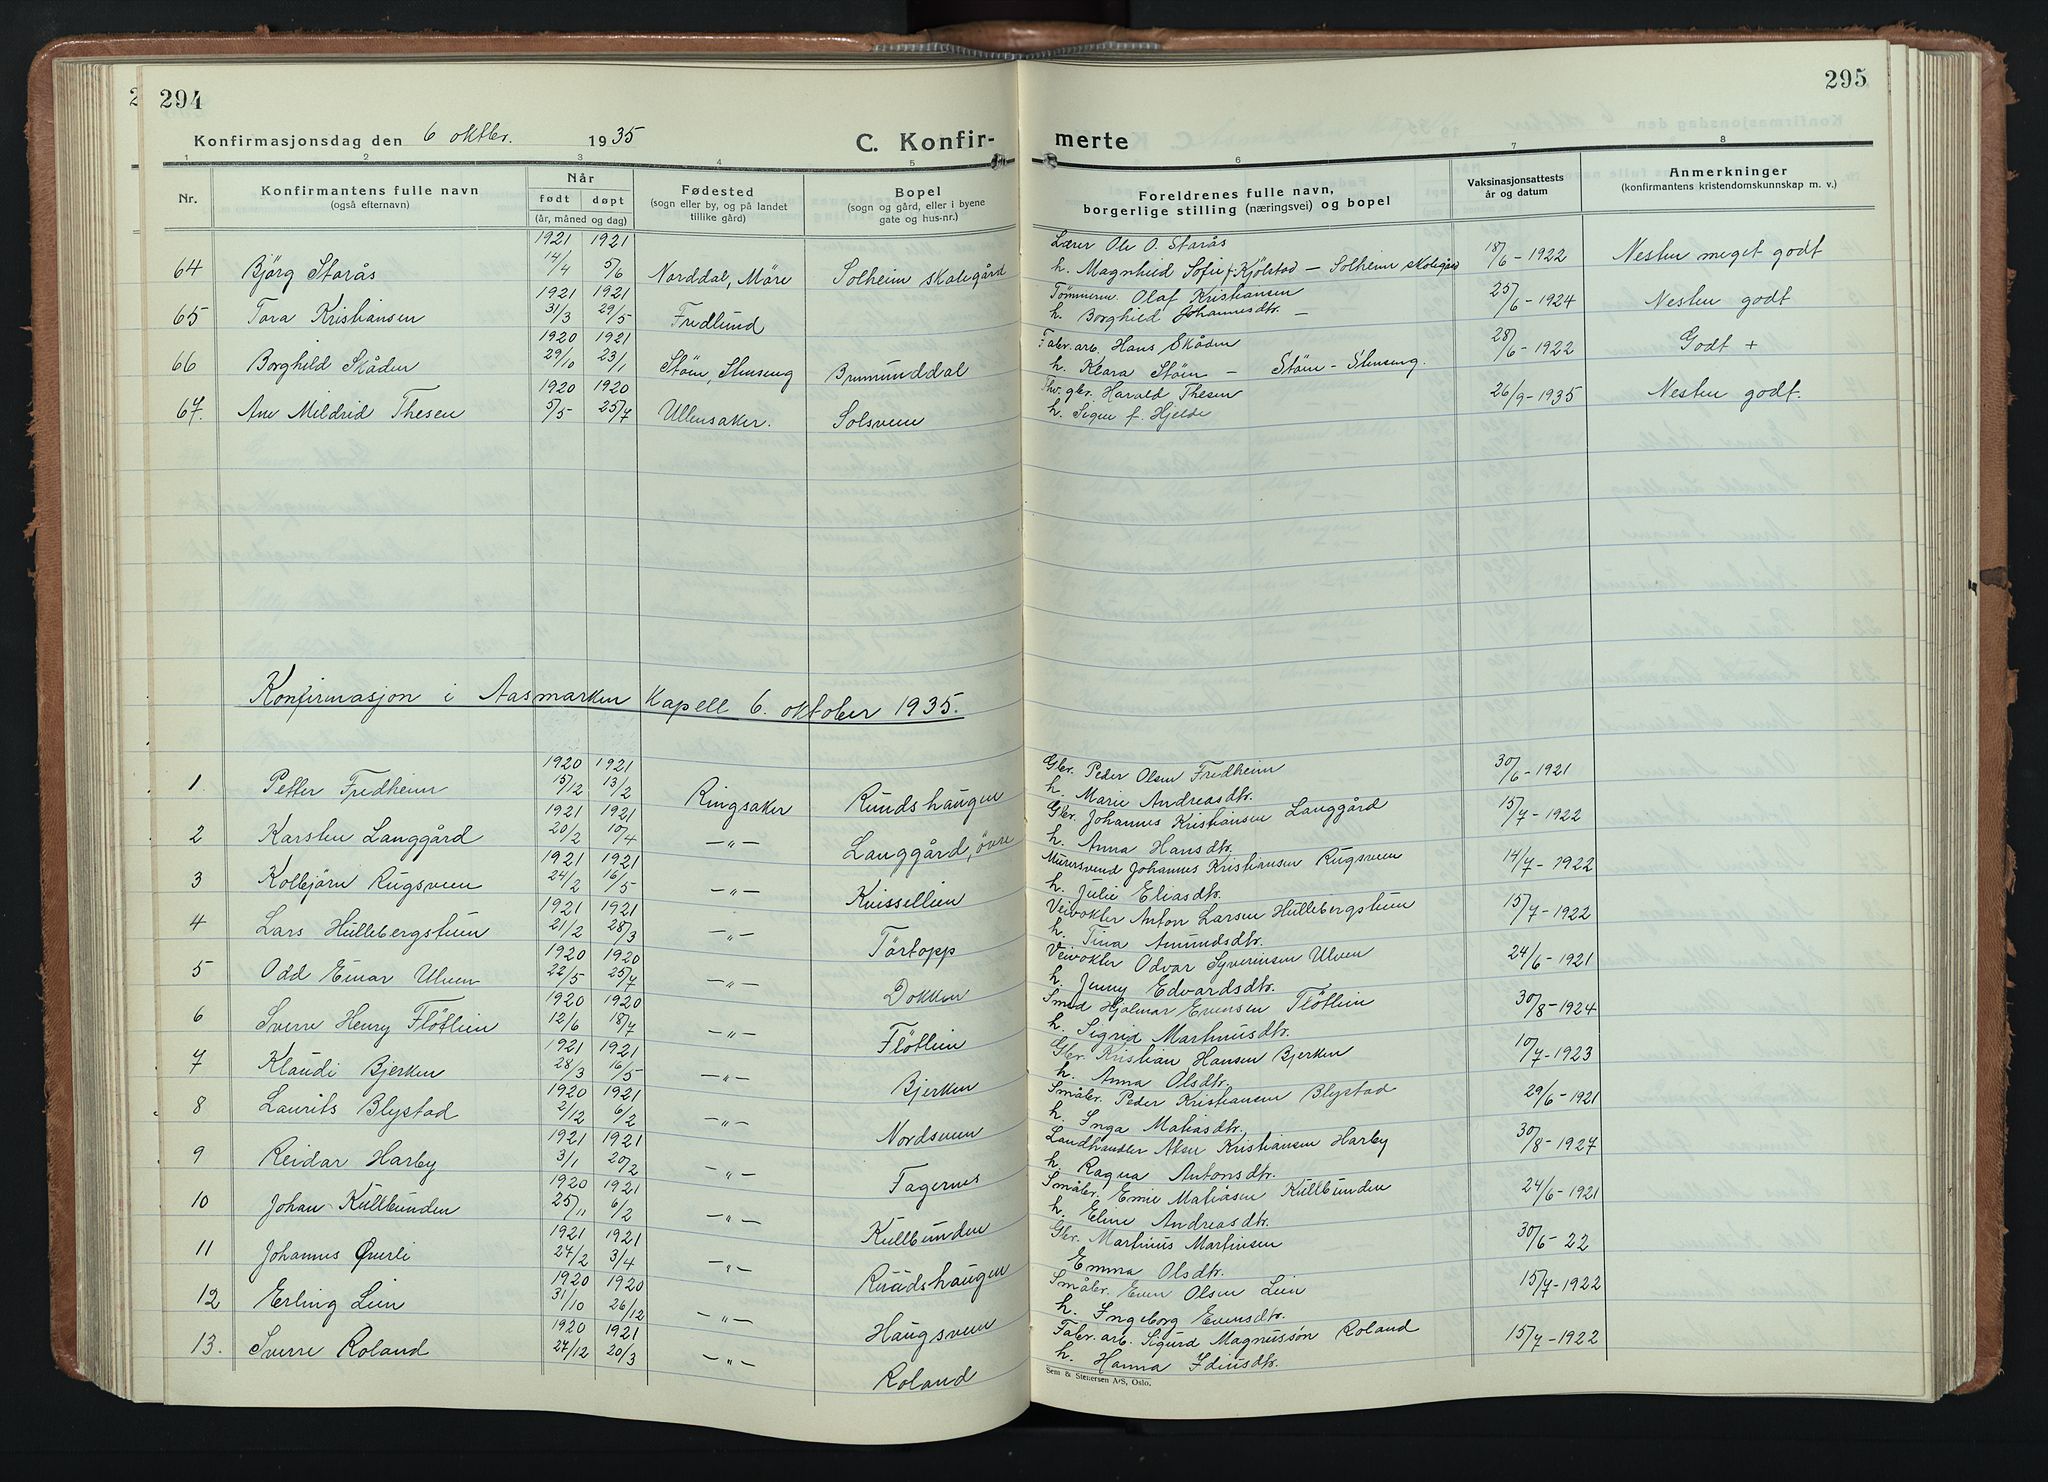 294
295
Konfirmasjonsdag den 6 oktbr. 1935
C. Konfir-
merte
1 2 3 4 5 6 7 8
Nr.
Konfirmantens fulle navn
(også efternavn)
Når
født døpt
(år, måned og dag)
Fødested
(sogn eller by, og på landet
tillike gård)
Bopel
(sogn og gård, eller i byene
gate og hus-nr.)
Foreldrenes fulle navn,
borgerlige stilling (næringsvei) og bopel
Vaksinasjonsattests
år og datum
Anmerkninger
(konfirmantens kristendomskunnskap m. v.)
1921 1921 Lærer Ole O. Starås
64 Bjørg Starås 14/4 5/6 Norddal, Møre Solheim skolegård h. Magnhild Sofie f. Kjölstad – Solheim skolegård 18/6 – 1922 Nesten meget godt
1921 1921 Tømmerm. Olaf Kristiansen
65 Tora Kristiansen 31/3 29/5 Fredlund h. Borghild Johannesdtr. – 25/6 – 1924 Nesten godt
1920 1921 Fabr. arb. Hans Skåden
66 Borghild Skåden 29/10 23/1 Stöen, Stenseng Brumunddal h. Klara Stöen – Stöen – Stenseng. 28/6 – 1922 Godt +
1920 1920 gbr. Harald Thesen
67. Ane Mildrid Thesen 5/5 25/7 Ullensaker. Solsveen h. Signe f. Hjelde 26/9 – 1935 Nesten godt.
Konfirmasjon i Aasmarken Kapell 6. oktober 1935.
1920 1921 Gbr. Peder Olsen Fredheim
1. Petter Fredheim 15/12 13/2 Ringsaker Rundshaugen h. Marie Andreasdtr. 30/6 – 1921
1921 1921 Gbr. Johannes Kristiansen Langgård
2 Karsten Langgård 20/2 10/4 – " – Langgård, övre h. Anna Hansdtr. 15/7 – 1922
1921 1921 Murersvend Johannes Kristiansen Rugsveen
3 Kolbjörn Rugsveen 24/2 16/5 – " – Kvissellien h. Julie Eliasdtr. 14/7 – 1922
1921 1921 Veivokter Anton Larsen Hullebergstuen
4 Lars Hullebergstuen 21/2 28/3 – " – Törtopp h. Tina Amundsdtr. 15/7 – 1922
1920 1920 Veivokter Odvar Syverinsen Ulven
5 Odd Einar Ulven 22/5 25/7 – " – Dokken h. Jenny Edvardsdtr. 24/6 – 1921
1920 1920 Smed Hjalmar Evensen Flötlien
6 Sverre Henry Flötlien 12/6 18/7 – " – Flötlien h. Sigrid Marthinusdtr. 30/8 – 1924
1921 1921 Gbr. Kristian Hansen Bjerken
7 Klaudi Bjerken 28/3 16/5 – " – Bjerken h. Anna Olsdtr. 10/7 – 1923
1920 1921 Småbr. Peder Kristiansen Blystad
8 Laurits Blystad 2/12 6/2 – " – Nordsveen h. Inga Matiasdtr. 29/6 – 1921
1921 1921 Landhandler Aksel Kristiansen Harby
9 Reidar Harby 3/1 20/2 – " – Fagernes h. Ragna Antonsdtr. 30/8 – 1927
1920 1921 Småbr. Emil Matiasen Kullbunden
10 Johan Kullbunden 25/11 6/2 – " – Kullbunden h. Eline Andreasdtr. 24/6 – 1921
1921 1921 Gbr. Martinus Martinsen
11 Johannes Øverli 24/2 3/4 – " – Ruudshaugen Emma Olsdtr. 30/6 – 22
1920 1920 Småbr. Even Olsen Lien
12 Erling Lien 31/10 26/12 – " – Haugsveen h. Ingeborg Evensdtr. 15/7 – 1922
1920 1921 Fabr. arb. Sigurd Magnussøn Roland
13. Sverre Roland 27/12 20/3 – " – Roland h. Hanna Idiusdtr. 15/7 – 1922
Sem & Stenersen A/S, Oslo.